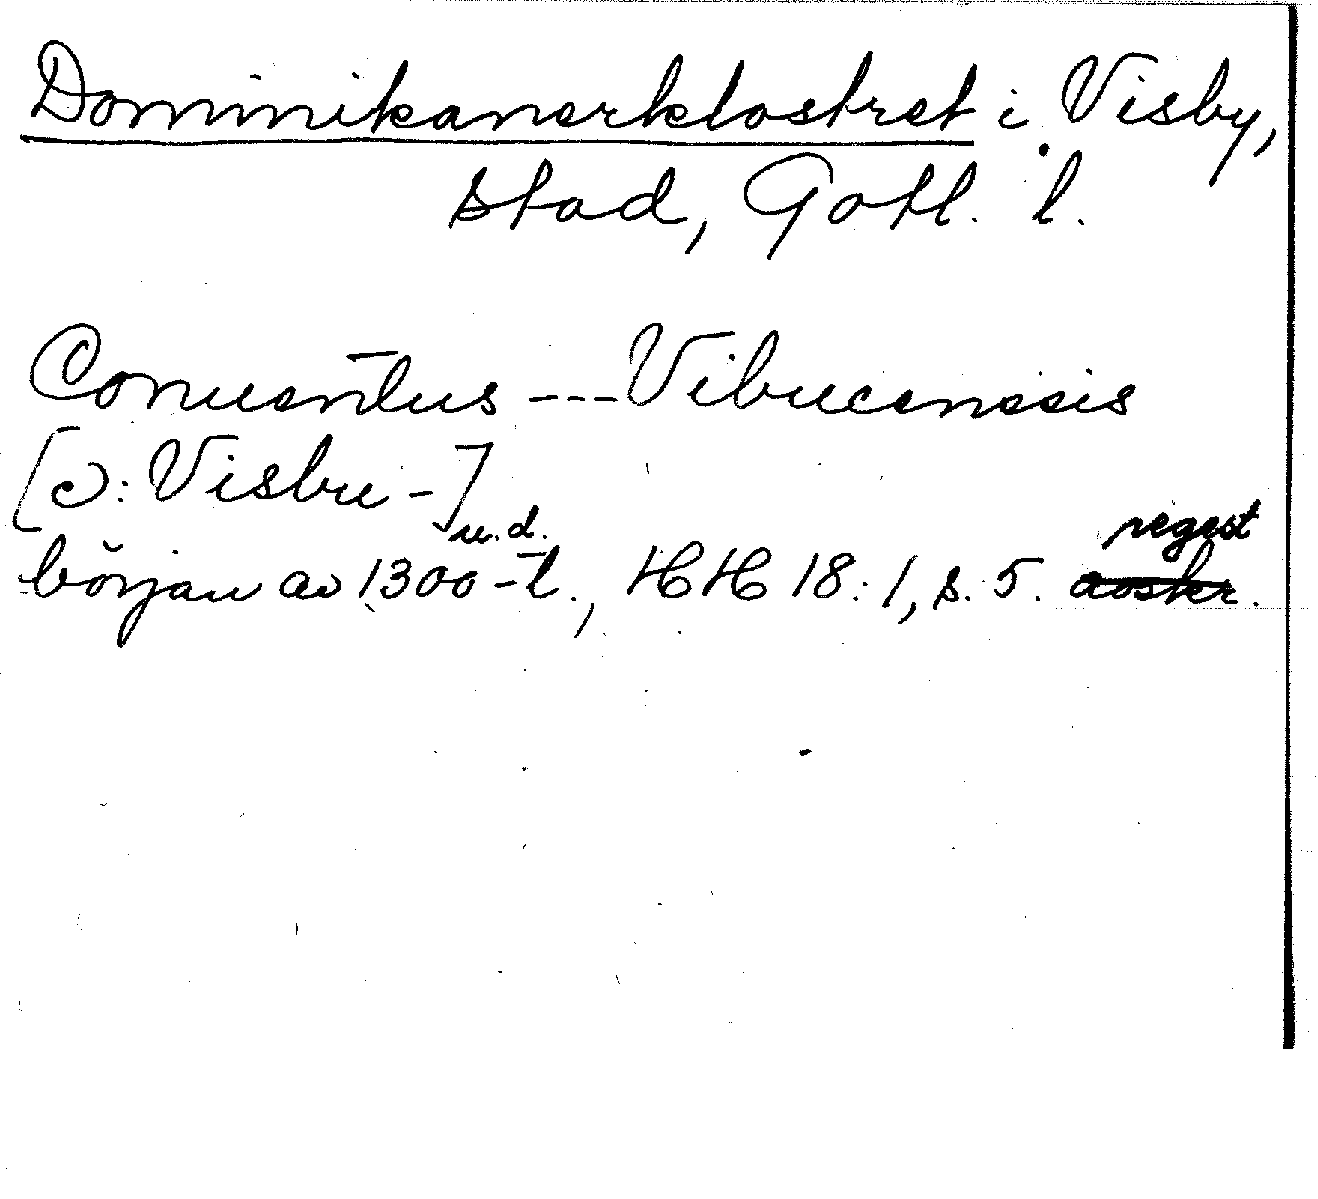 Dominikanerklostret i Visby,
stad, Gotl. l.
Conuentus --- Vibucensis
[ɔ: Visbu-]
u.d.
regest
början av 1300-t., HH 18:1, s. 5. avskr.